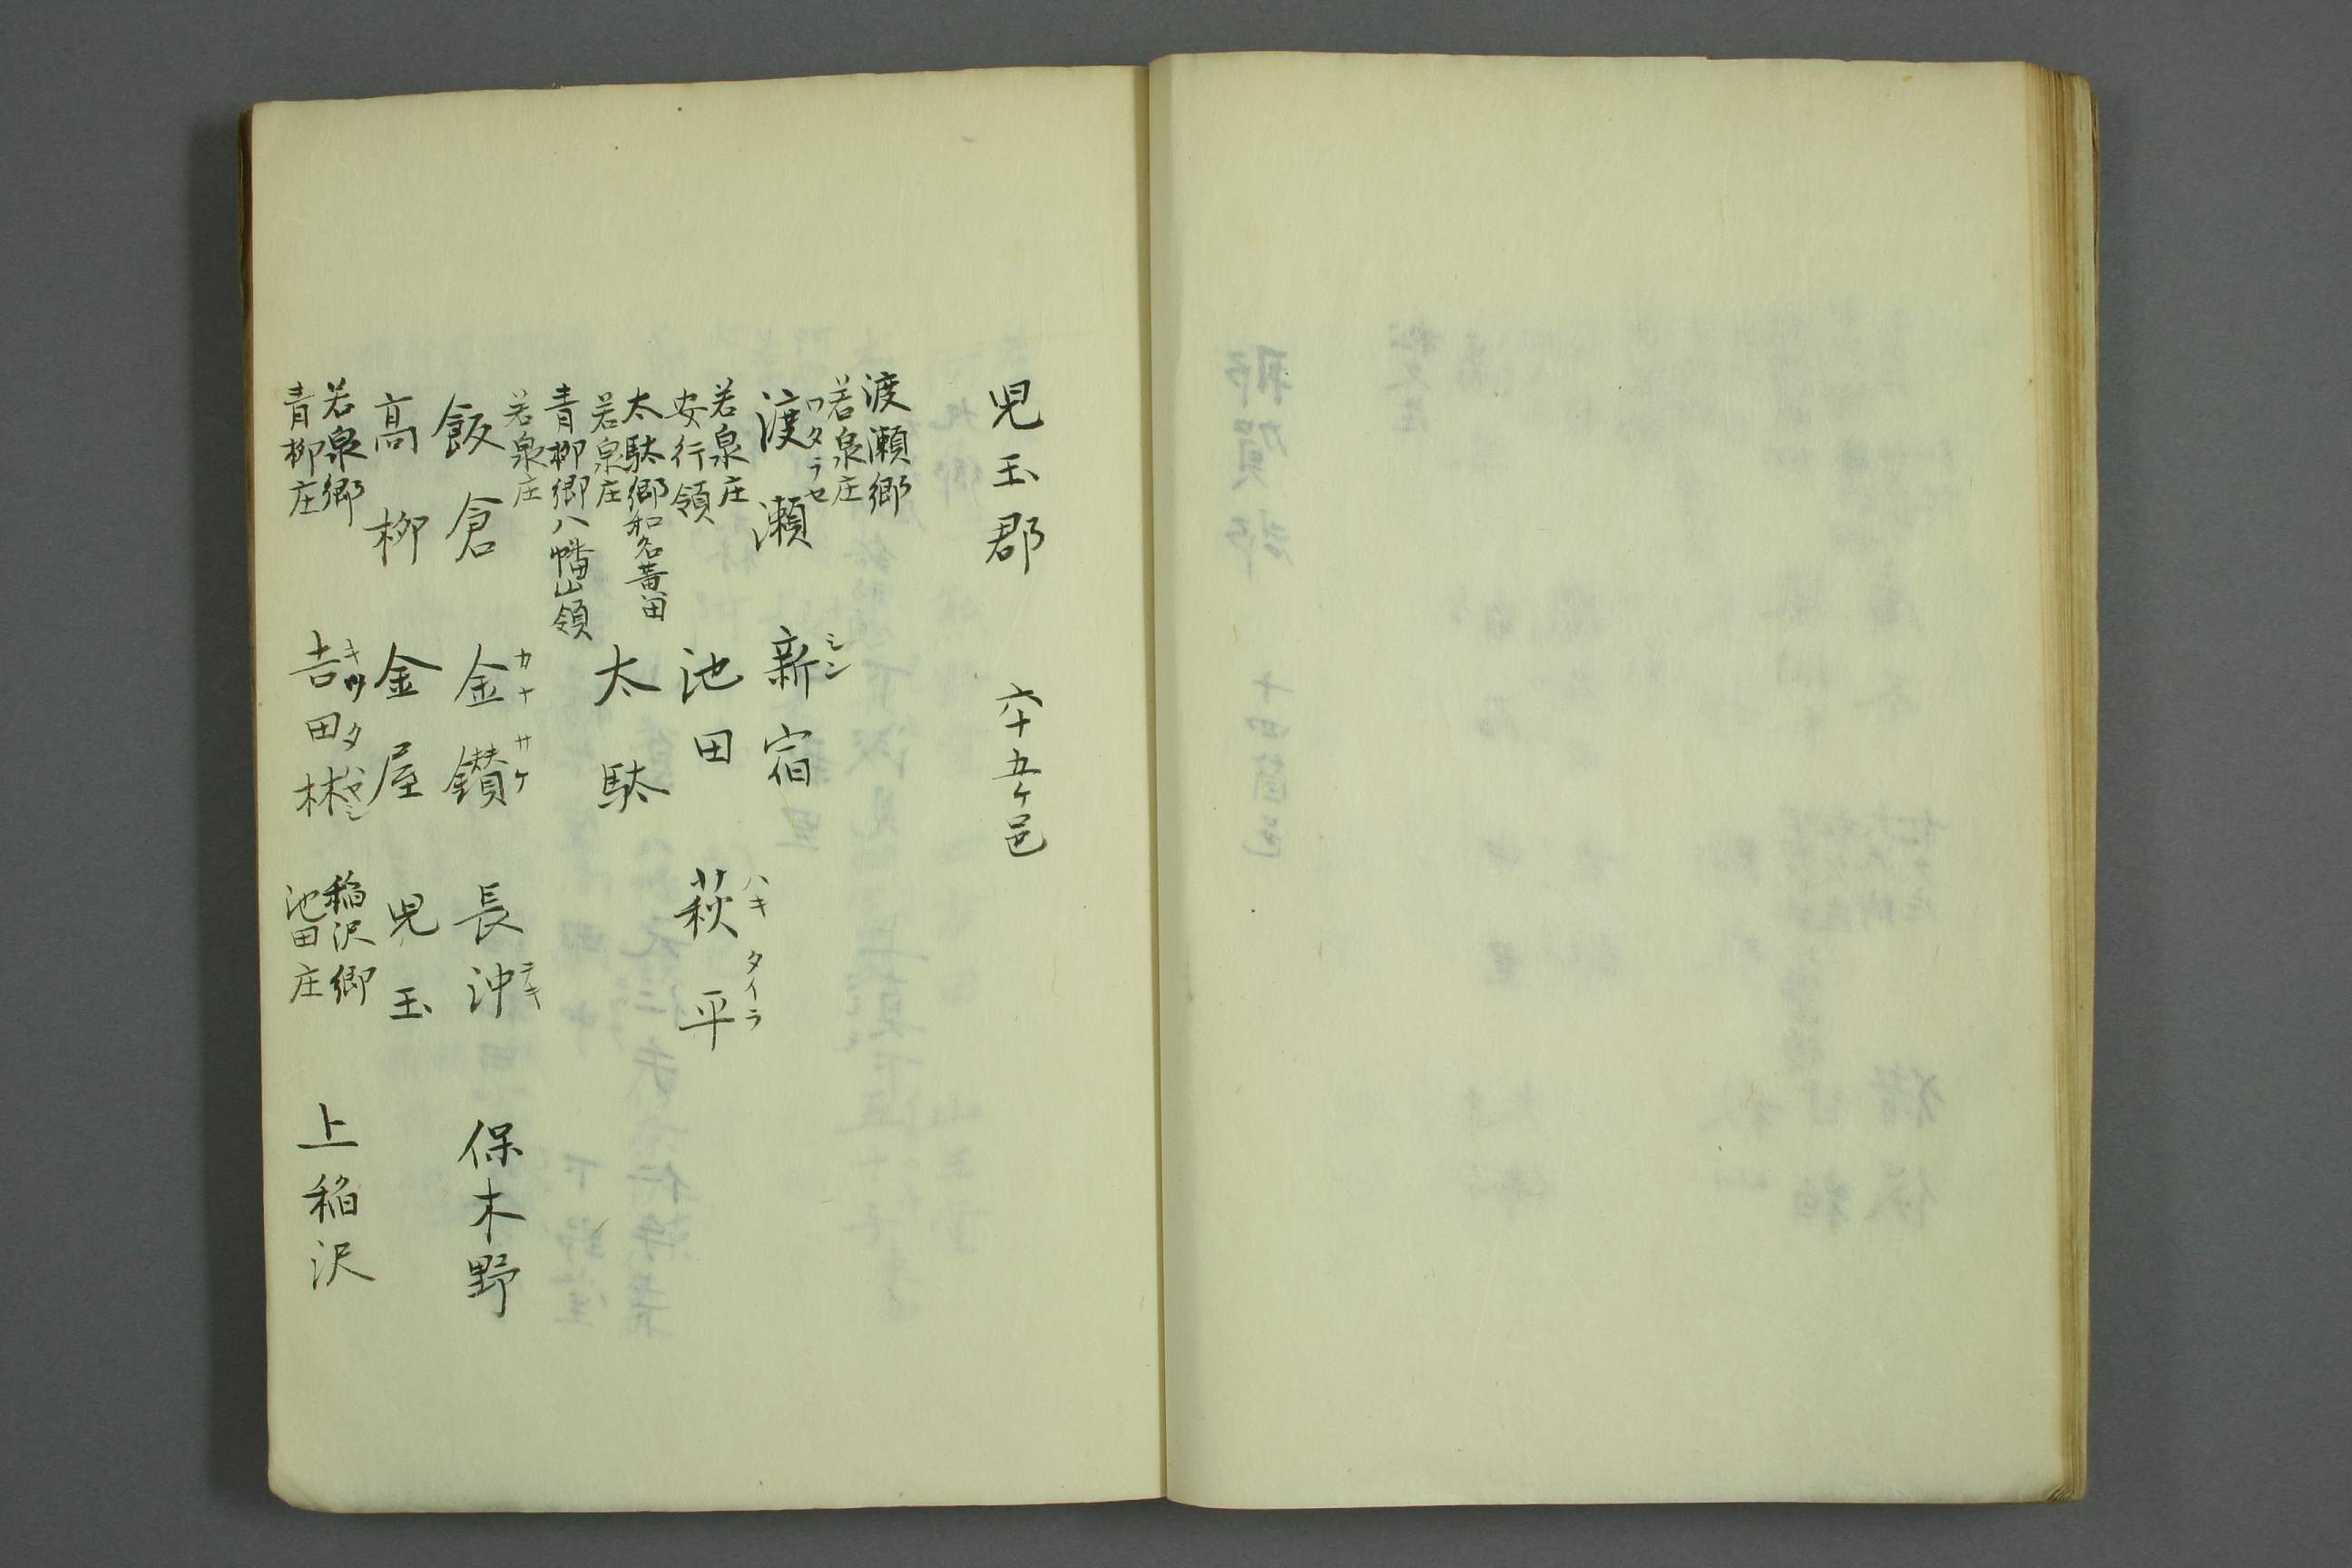 児玉郡　六十五ケ邑
渡瀬郷
若泉庄
ワタラセ
渡瀬
シン
新宿
若泉庄
安行領
池田
ハキ　タイラ
萩平
太駄郷和名黄田
若泉庄
太駄
青柳郷八幡山領
若泉庄
飯倉
カナ　サケ
金鑚
ヲキ
長沖
保木野
高柳
金屋
児玉
若泉郷
青柳庄
キツ　タ　ハヤシ
吉田林
稲沢郷
池田庄
上稲沢